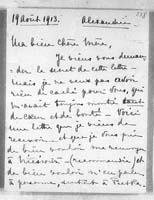 19 Août 1913. Alexandrie
Ma bien chère Mère,
Je viens vous deman-
der le secret de cette lettre
mais je ne veux pas avoir
rien de caché pour vous, qui
m'avait toujours montré tant
de cœur et de bonté. Voici
une lettre que je viens
et que je vous prie
de bien vouloir me renvoyer
à (recommandée) et
de bien vouloir n'en parler
à personne, surtout à